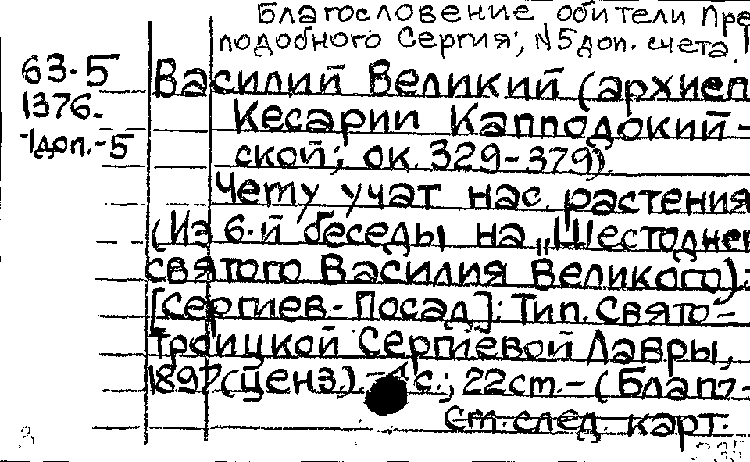 Благословение обители Пре
подобного Сергия; N5 доп. счета
63-5
1376-
-1доп.-5
Василий Великий (архиеп
Кесарии Капподокий-
ской; ок. 329-379)
Чему учат нас растения
(Из 6-й беседы на „Шестоднев
святого Василия Великого):
[Сергиев-Посад]: Тип. Свято-
Троицкой Сергиевой Лавры,
189? (ценз.).- с.; 22см.- (Благо-
См. след. карт.